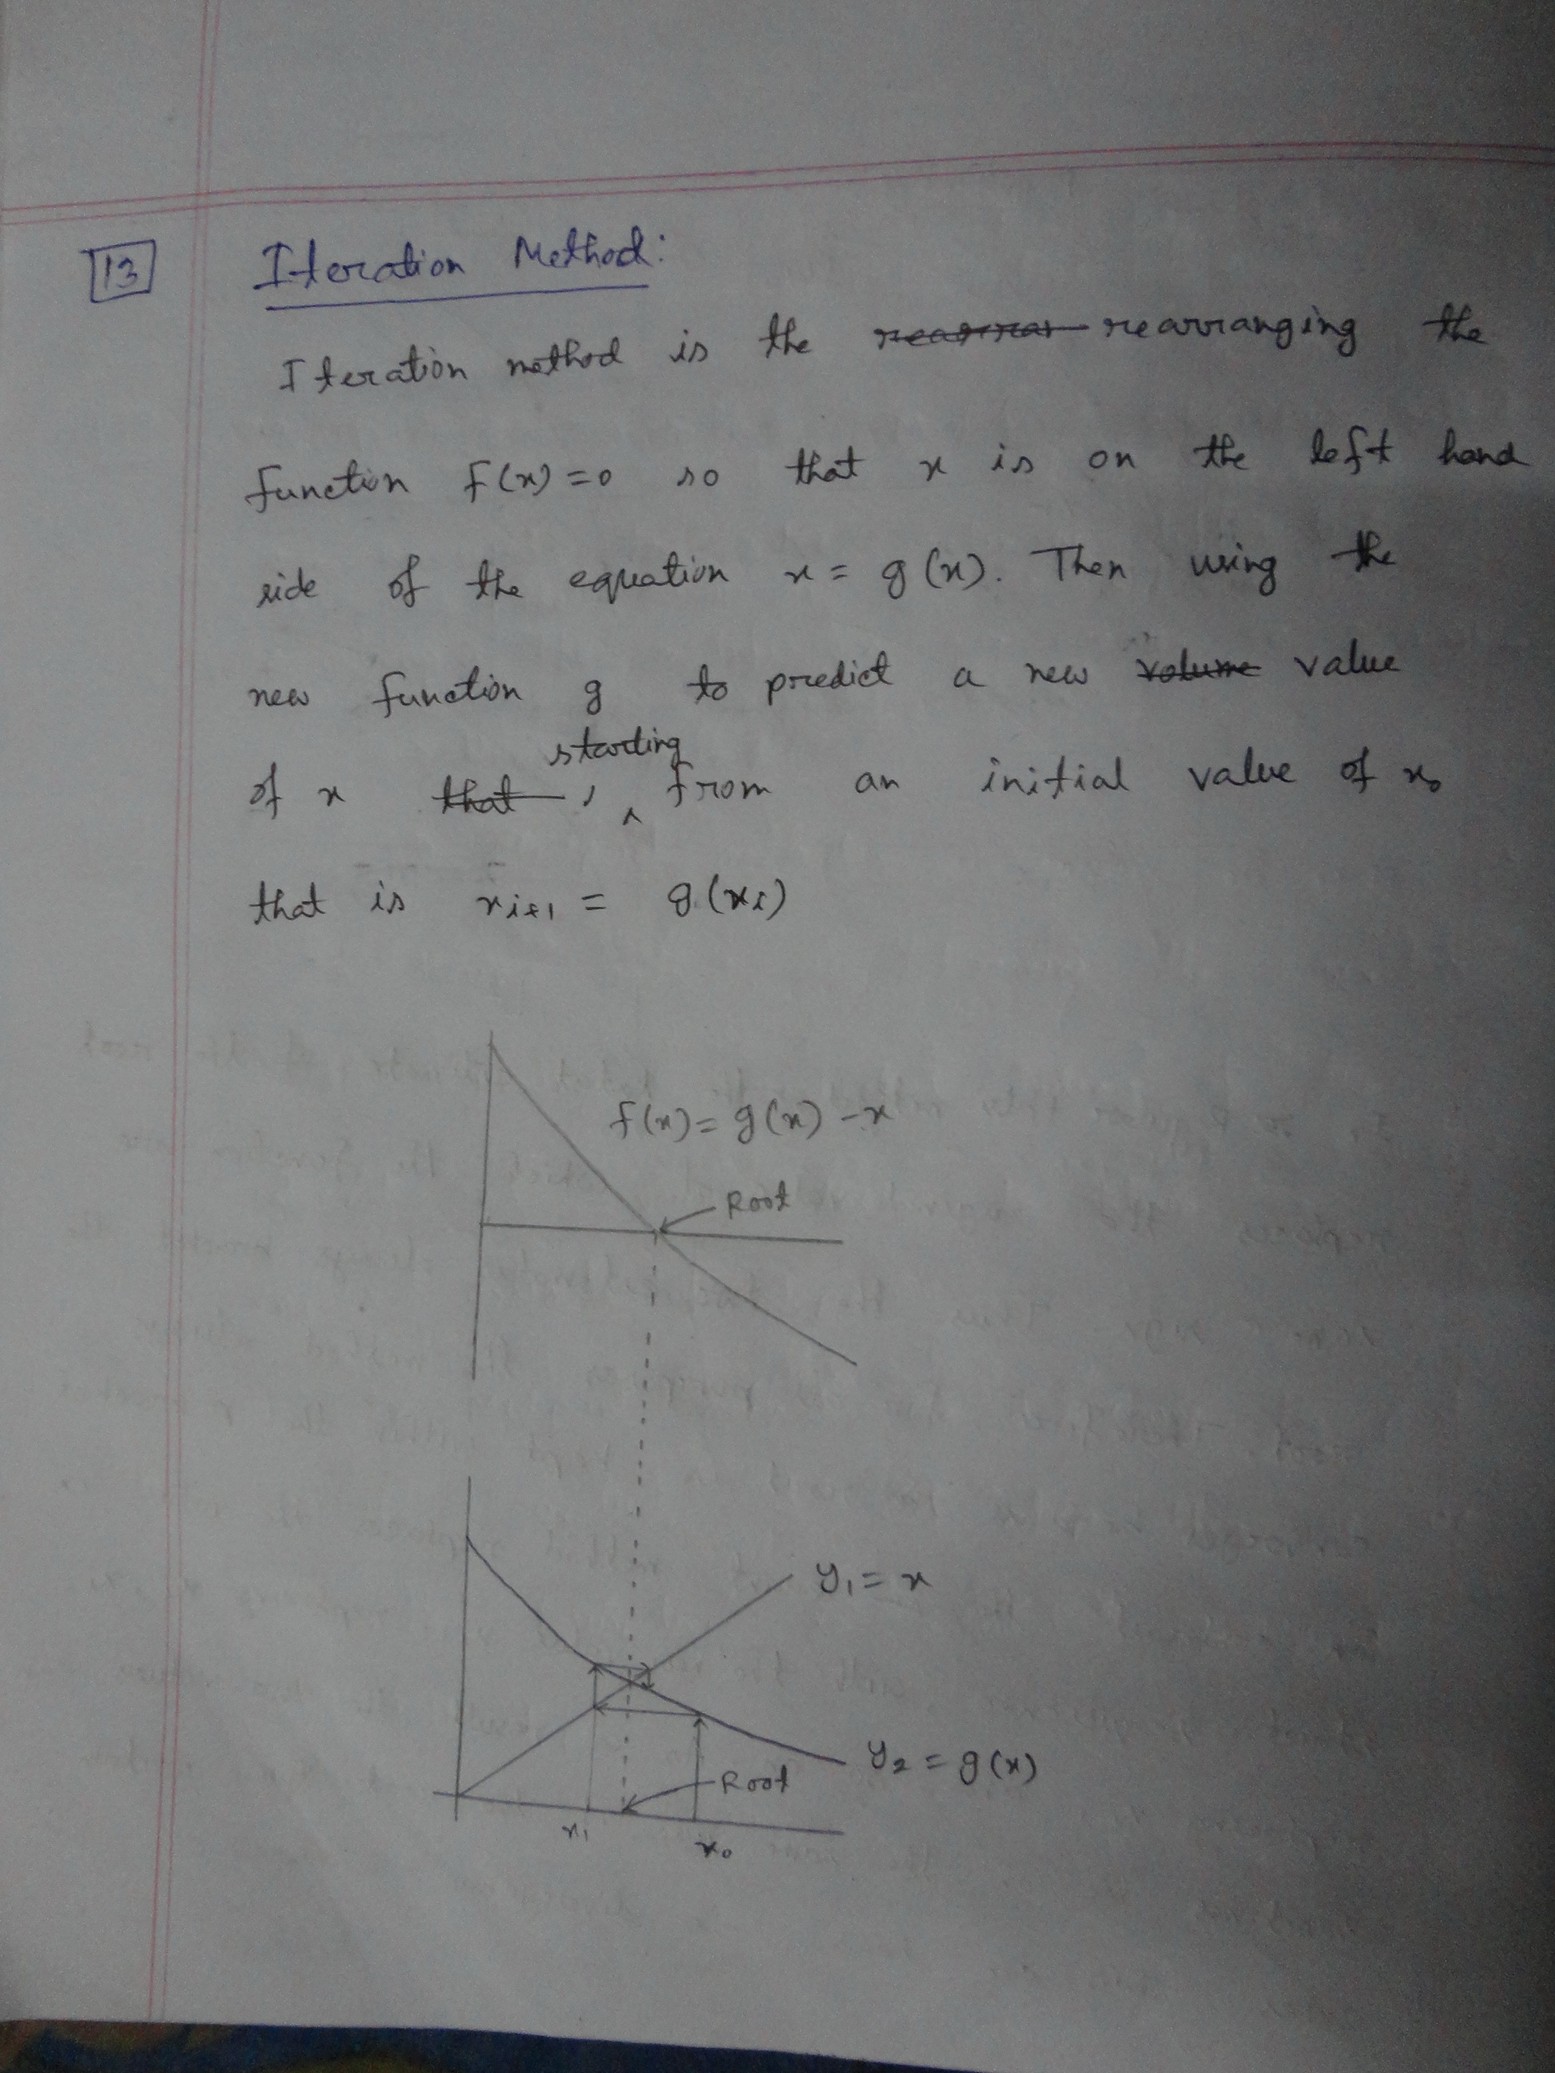 13 Iteration Method:
Iteration method is the rearranging the
function f(x)=0 so that x is on the left hand
side of the equation x = g(x). Then using the
new function g to predict a new volume value
starting
of x that , ^ from an initial value of x₀
that is xᵢ₊₁ = g(xᵢ)
f(x) = g(x) - x
Root
y₁ = x
y₂ = g(x)
Root
x₁
x₀